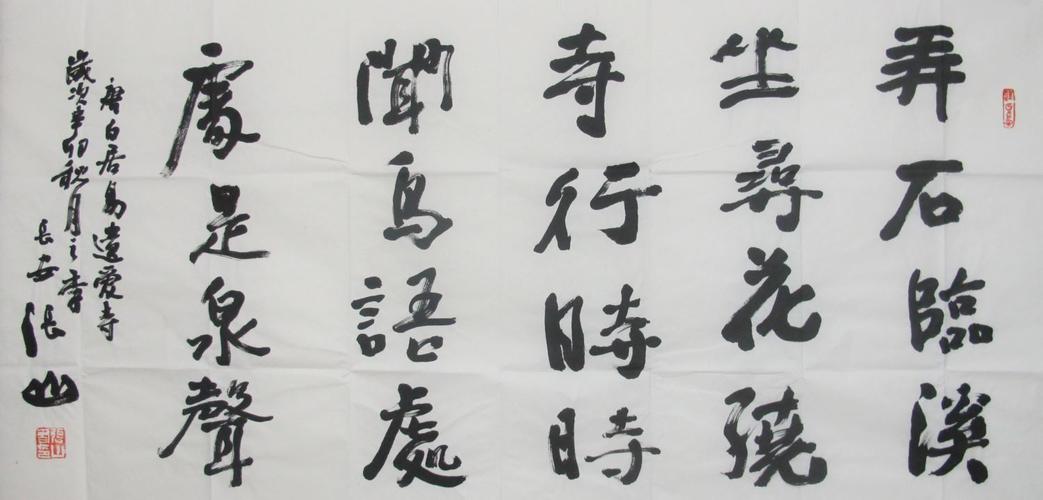 弄石臨溪
坐尋花繞
寺行時時
聞鳥語處
處是泉聲
唐白居易遺愛寺
歲次辛卯秋月之季
長安張山